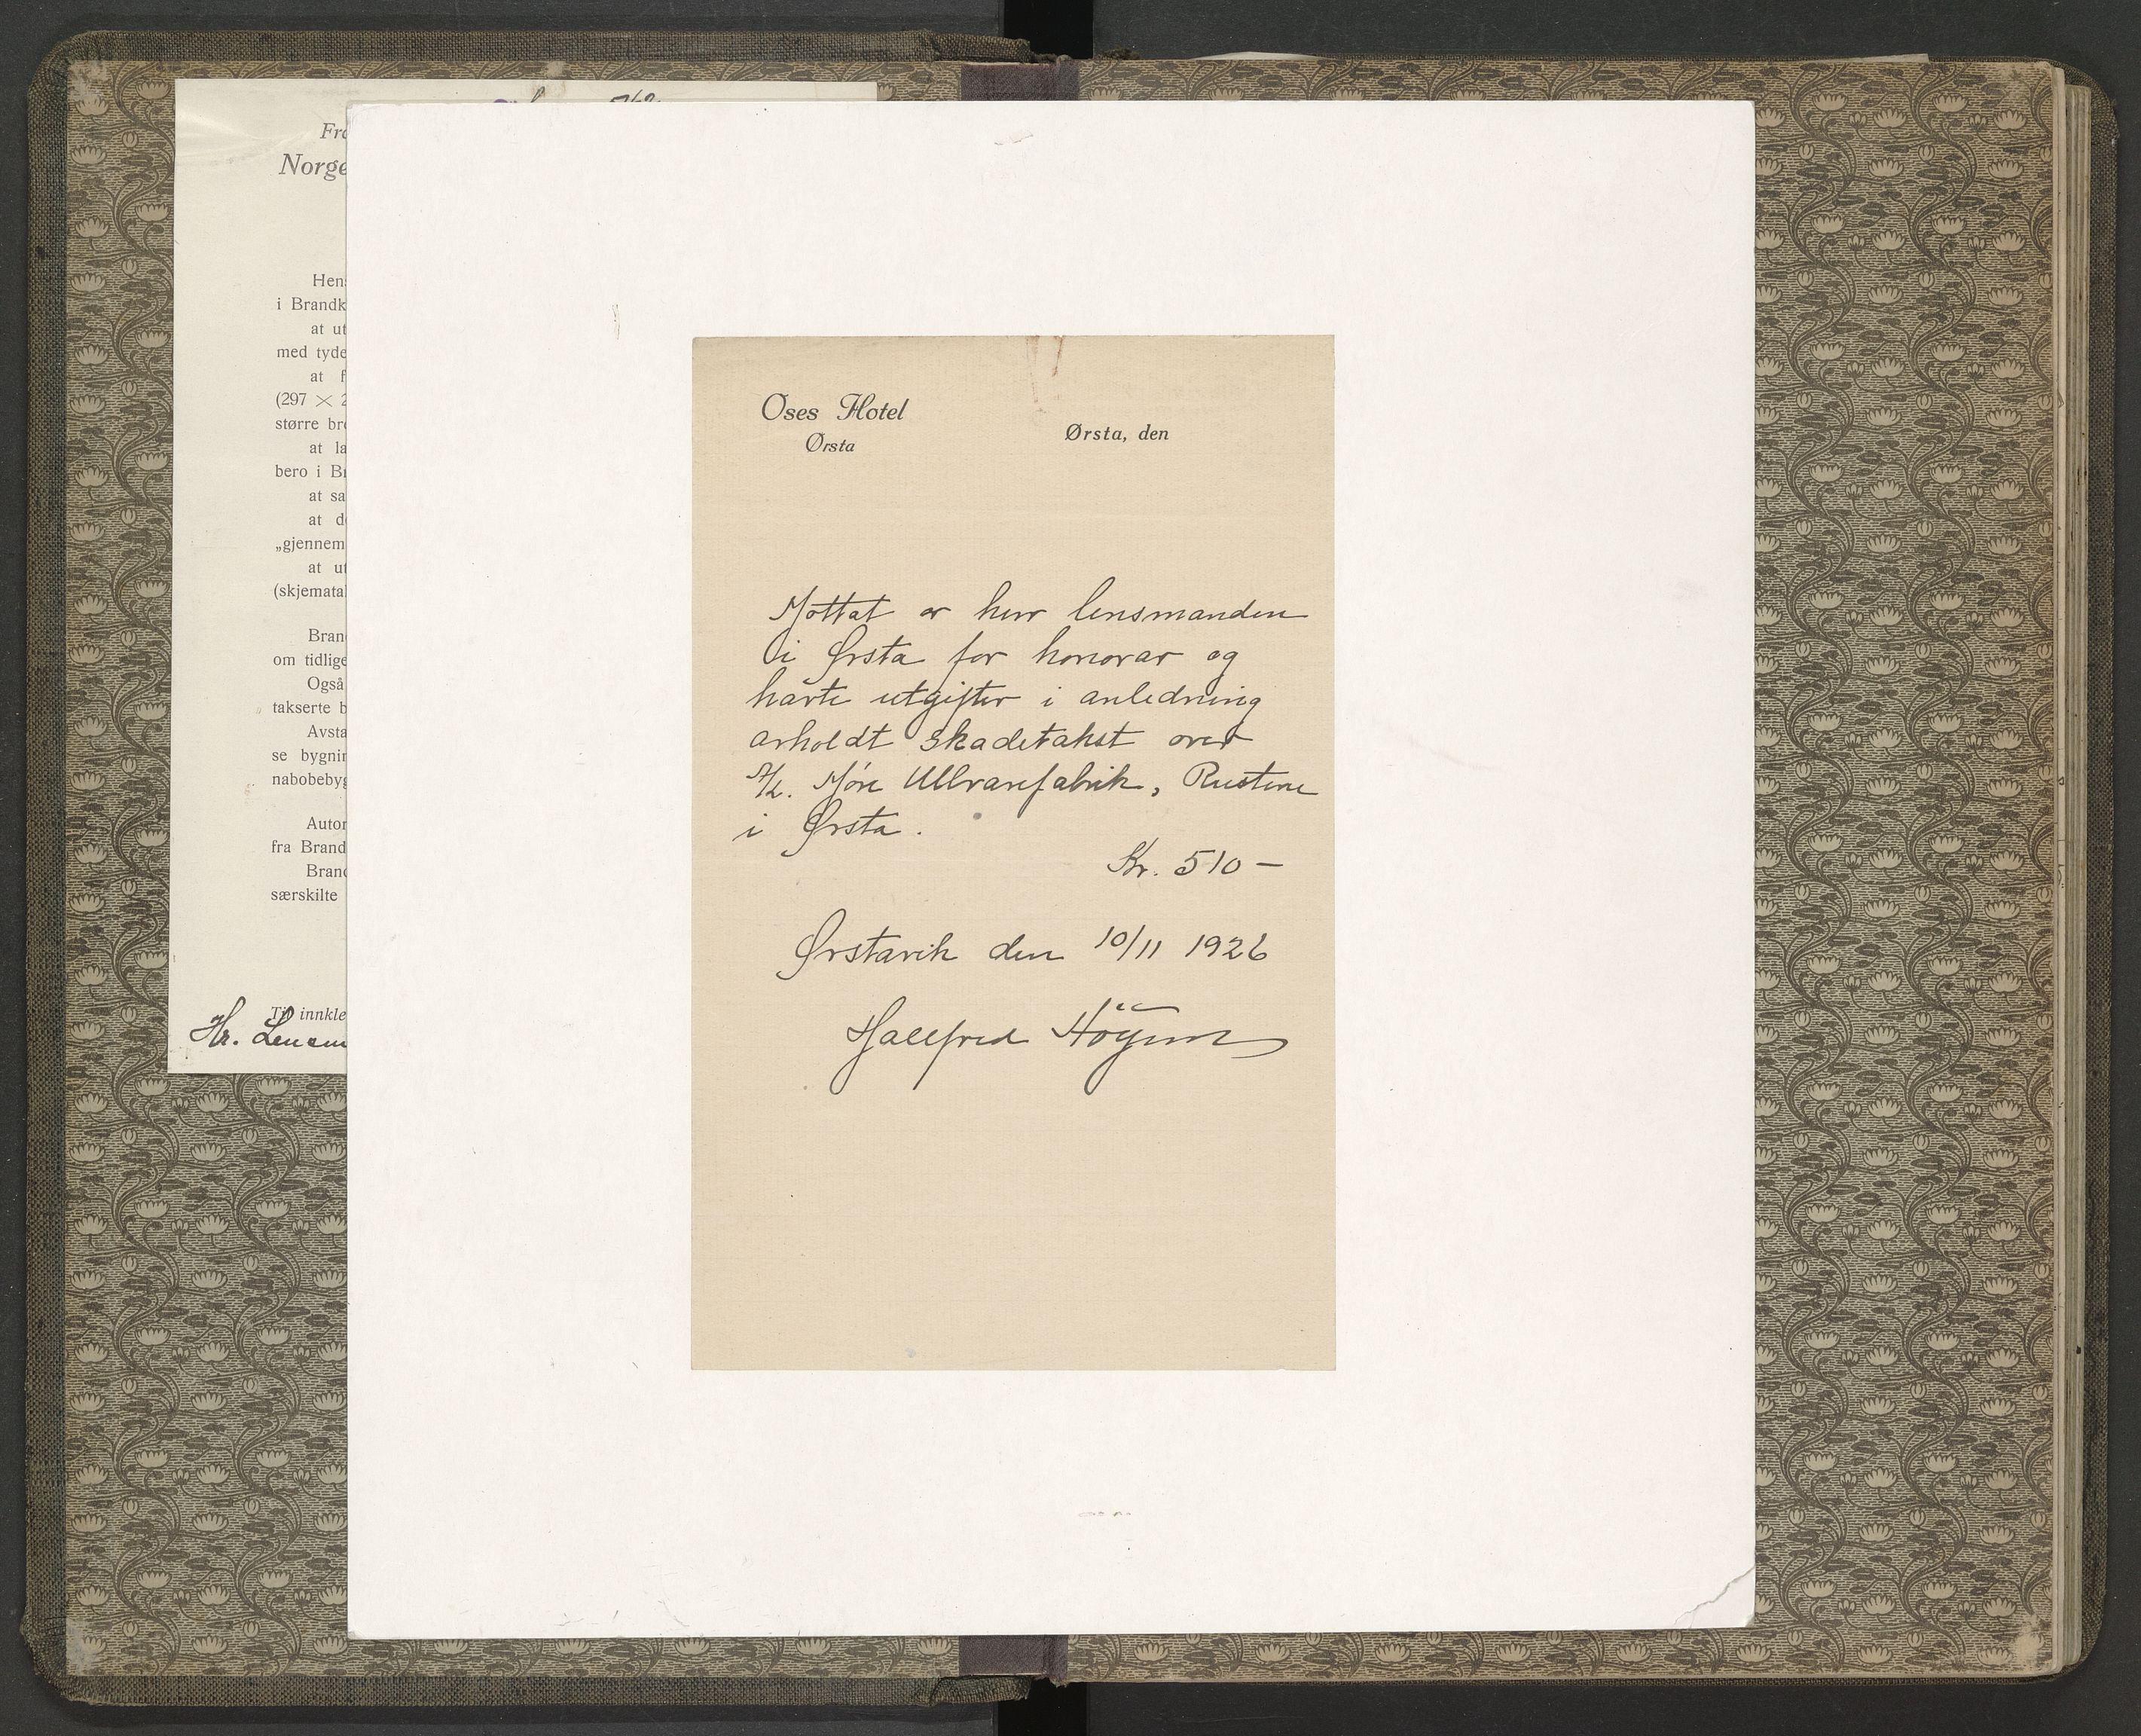 Fra
Norge
Hens
i Brandk
at ut
med tyde
at f
(297 × 2
større bre
at la
bero i Br
at sa
at de
„gjennem
at ut
(skjemata
Brand
om tidlige
Også
takserte b
Avsta
se bygnin
nabobebyg
Autor
fra Brand
Brand
særskilte
Til innkle
Hr. Lensm
Oses Hotel
Ørsta
Ørsta, den
Mottat av herr lensmanden
i Ørsta for honorar og
havte utgifter i anledning
avholdt skadetakst over
A/L. Møre Ullvarefabrik, Rustene
i Ørsta.
Kr. 510 —
Ørstavik den 10/11 1926
Hallfred